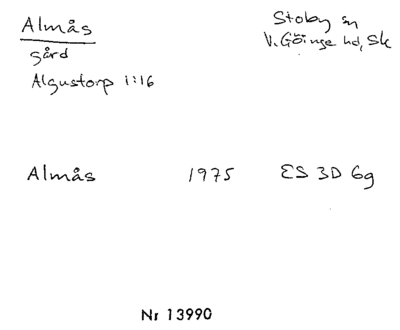 Almås
Stoby sn
V. Göinge hd, Sk
gård
Algustorp 1:16
Almås 1975 ES 3D 6g
Nr 13990